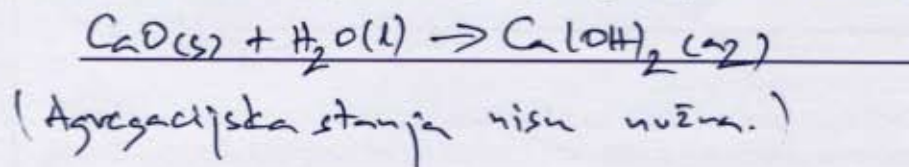 CaO(s) + H₂O(l) → Ca(OH)₂ (aq)
(Agregacijska stanja nisu nužna.)